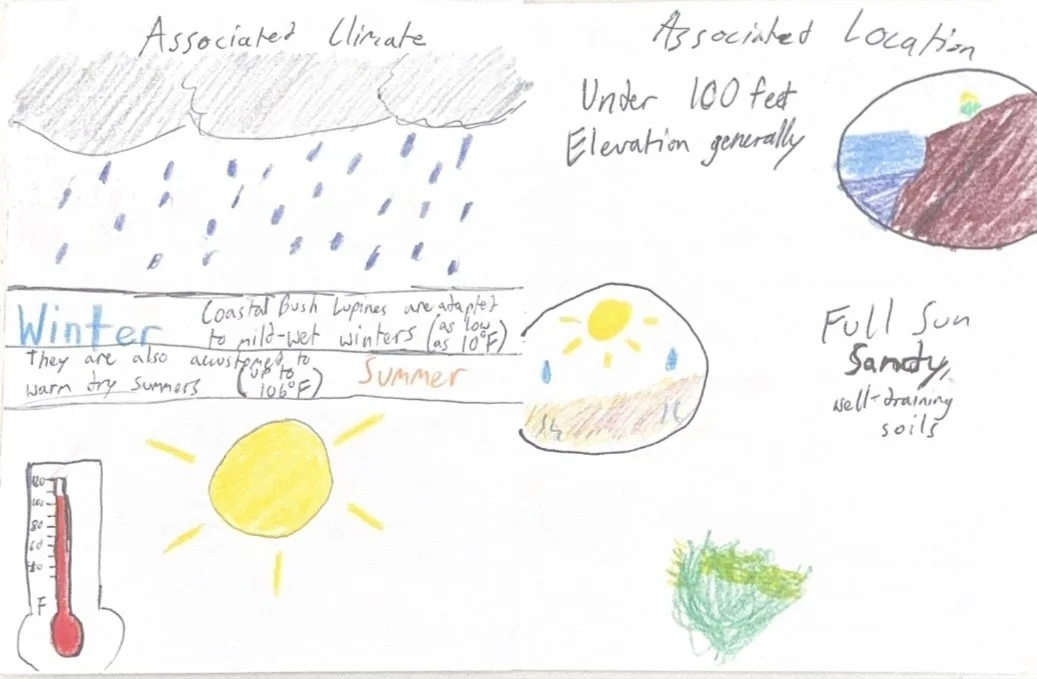 Associated Climate
Winter
Coastal Bush Lupines are adapted
to mild-wet winters (as low
as 10°F)
They are also accustomed to
warm dry summers (up to
106°F)
Summer
120
100
80
60
40
F
Associated Location
Under 100 feet
Elevation generally
Full Sun
Sandy,
well-draining
soils